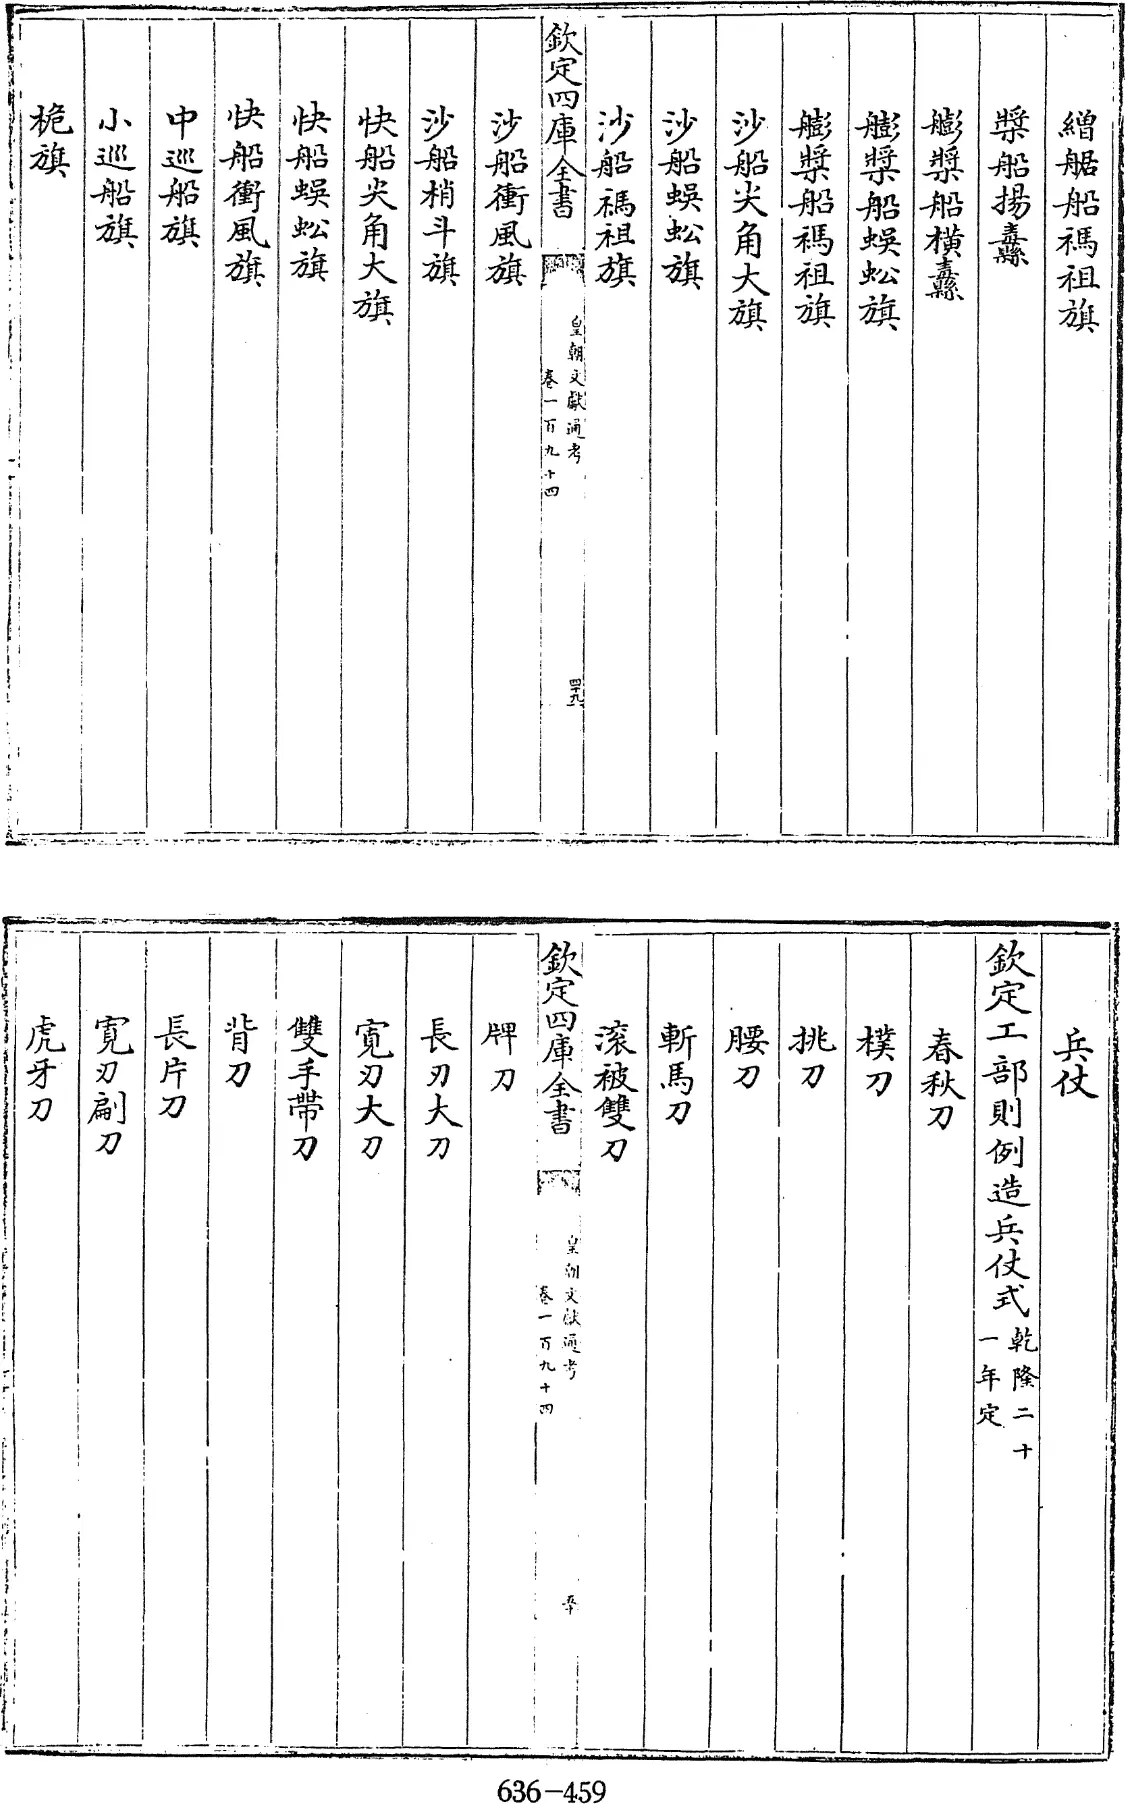 繒艍船禡祖旗
槳船揚纛
艍槳船橫纛
艍槳船蜈蚣旗
艍槳船禡祖旗
沙船尖角大旗
沙船蜈蚣旗
沙船禡祖旗
欽定四庫全書
皇朝文獻通考
卷一百九十四
四十九
沙船衝風旗
沙船梢斗旗
快船尖角大旗
快船蜈蚣旗
快船衝風旗
中巡船旗
小巡船旗
桅旗
兵仗
欽定工部則例造兵仗式乾隆二十
一年定
春秋刀
樸刀
挑刀
腰刀
斬馬刀
滾被雙刀
欽定四庫全書
皇朝文獻通考
卷一百九十四
五十
牌刀
長刃大刀
寛刃大刀
雙手帶刀
背刀
長片刀
寛刃剮刀
虎牙刀
636-459